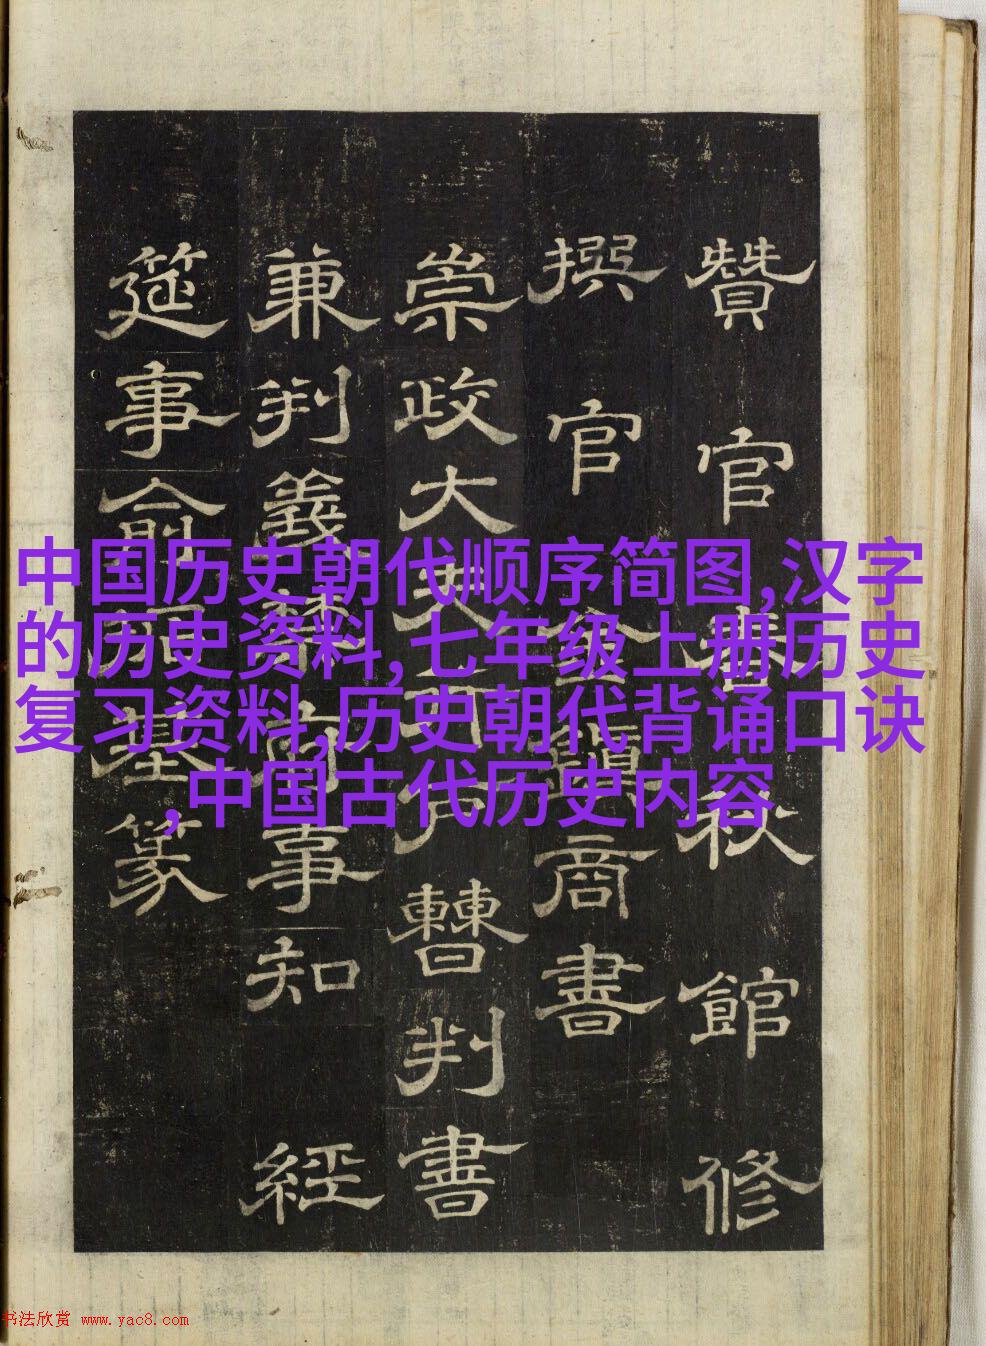 中国历史朝代顺序简图,汉字
的历史资料,七年级上册历史
复习资料,历史朝代背诵口诀
,中国古代历史内容
贊官春秋館修
撰官 商書
崇政大夫行戶曹判書
兼判義禁府事知經
筵事俞拓基篆
书法欣赏 www.yac8.com